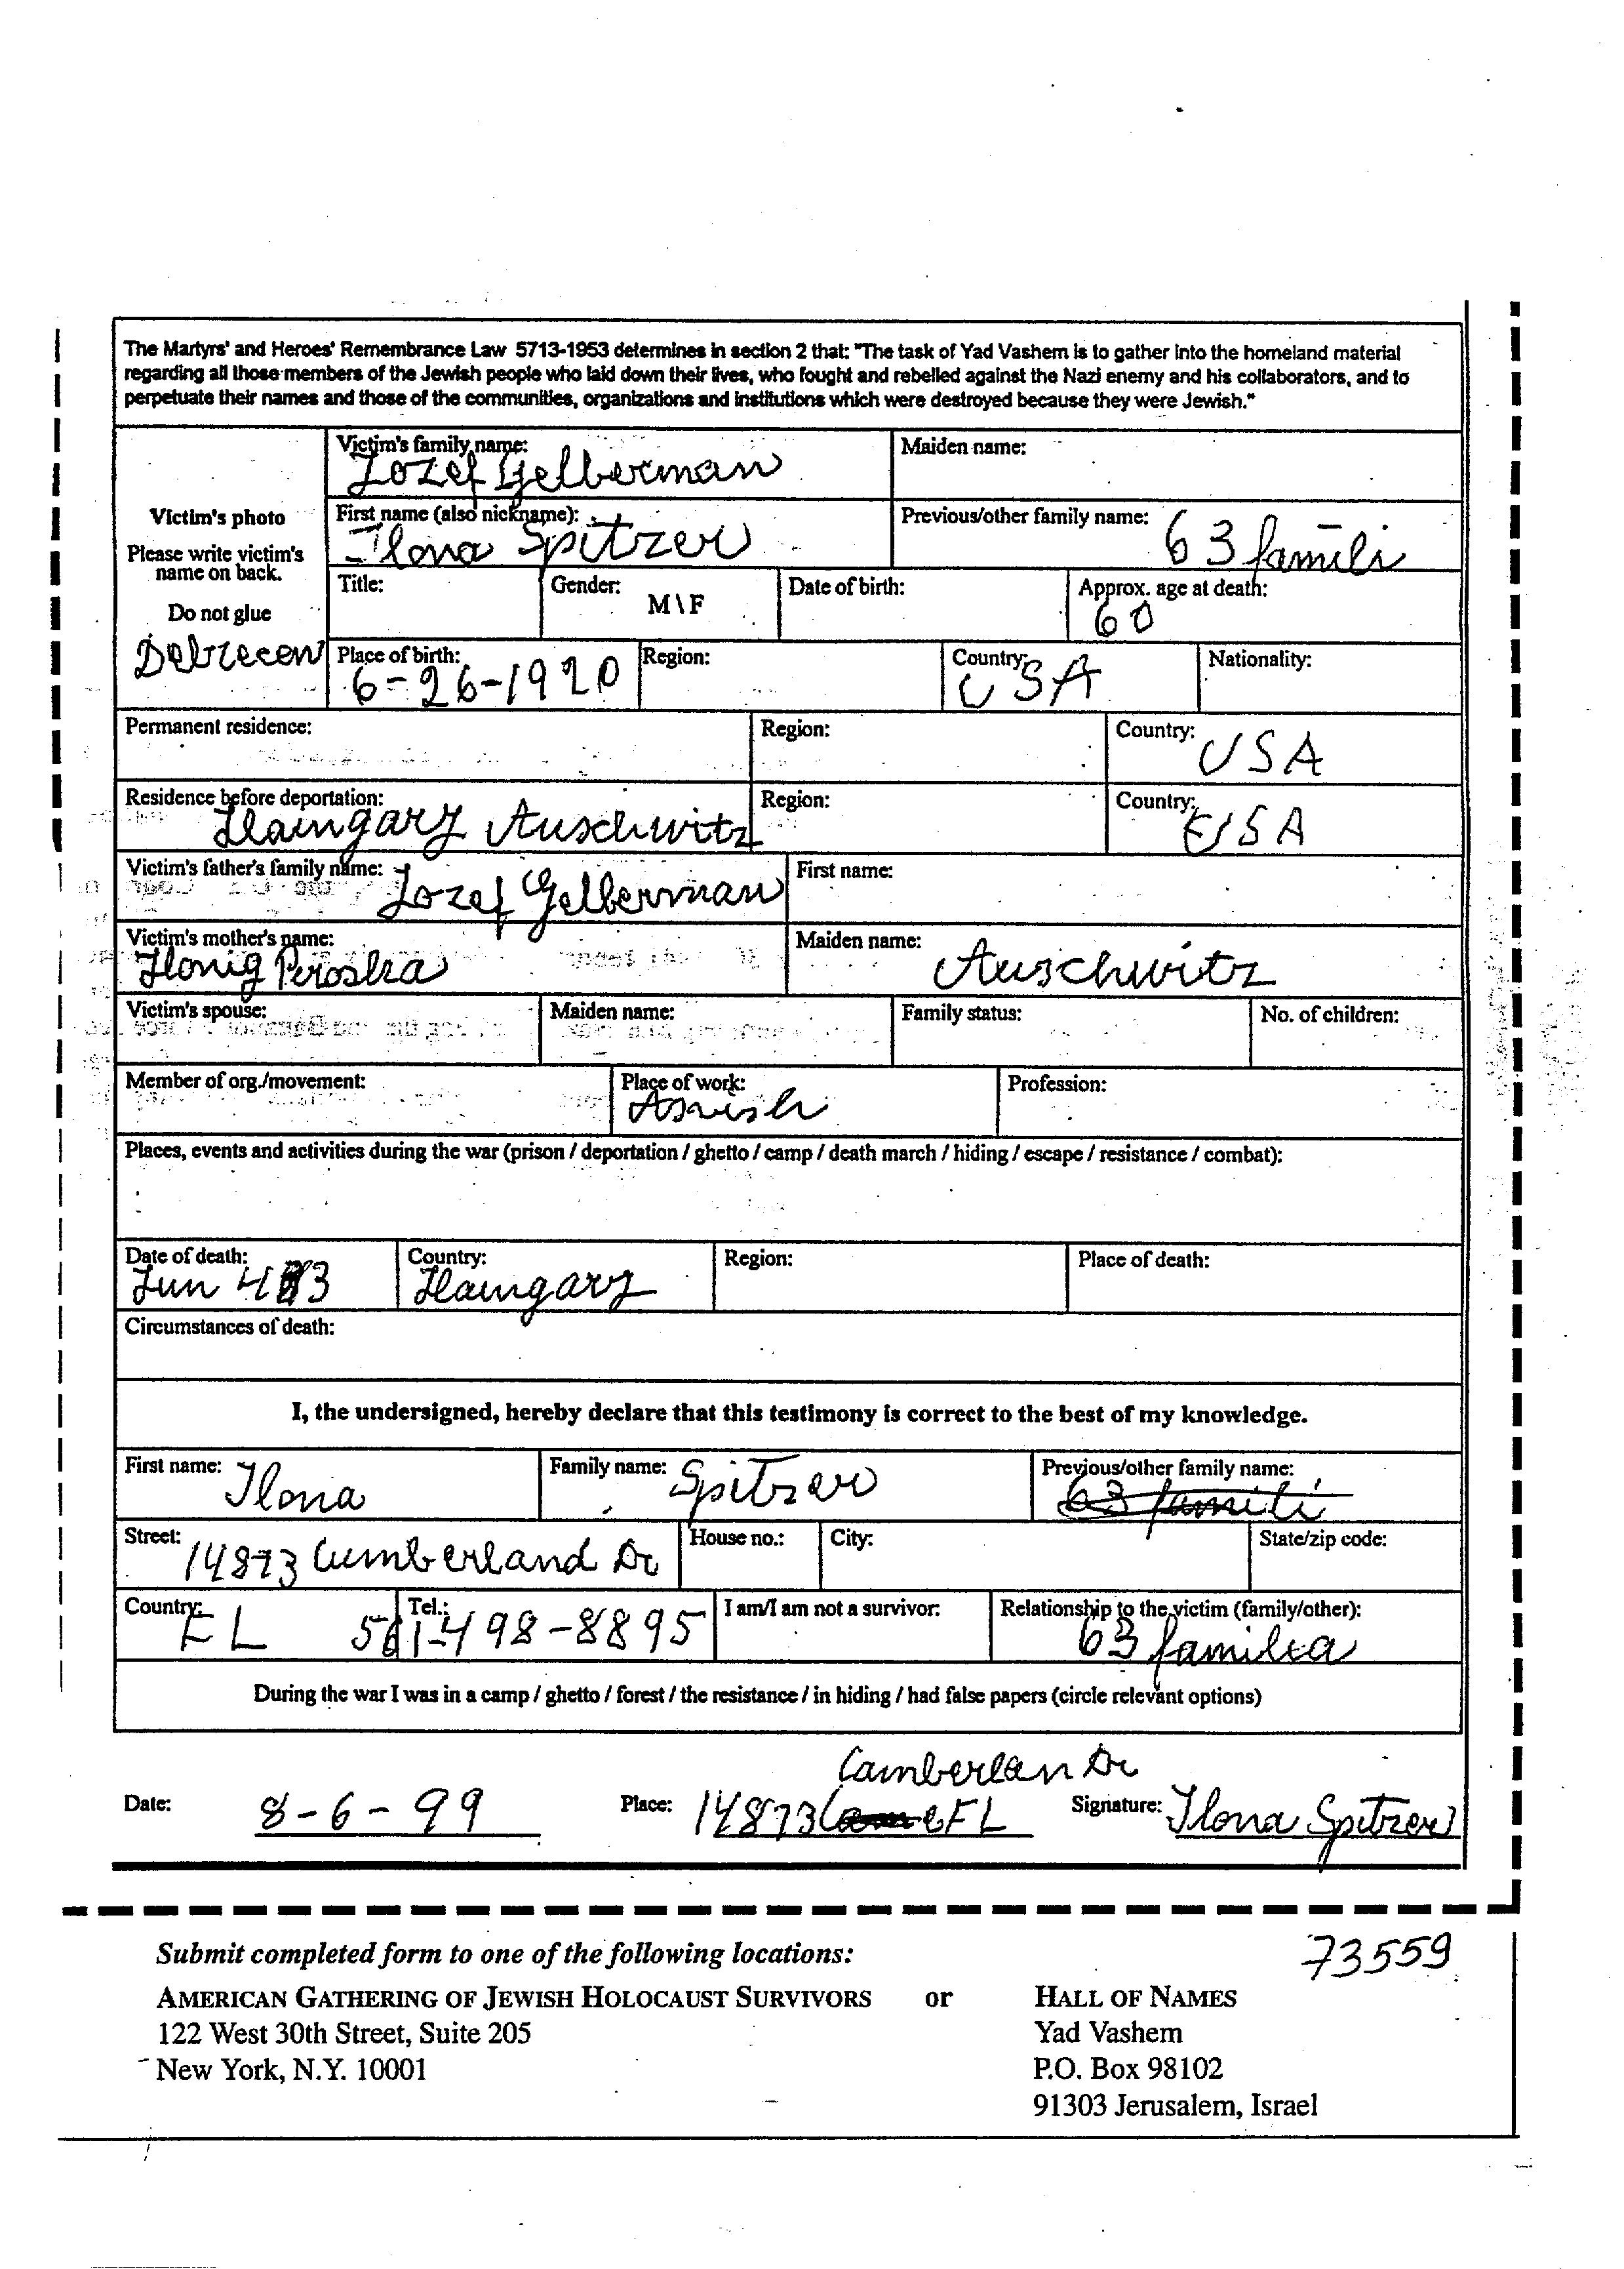 The Martyrs' and Heroes' Remembrance Law 5713-1953 determines in section 2 that: "The task of Yad Vashem is to gather into the homeland material
regarding all those members of the Jewish people who laid down their lives, who fought and rebelled against the Nazi enemy and his collaborators, and to
perpetuate their names and those of the communities, organizations and institutions which were destroyed because they were Jewish."
Victim's family name: Jozef Gelberman
Maiden name:
Victim's photo
Please write victim's
name on back.
Do not glue
Debrecen
First name (also nickname): Ilona Spitzer
Previous/other family name: 63 famili
Title:
Gender: M\F
Date of birth:
Approx. age at death: 60
Place of birth: 6-26-1920
Region:
Country: USA
Nationality:
Permanent residence:
Region:
Country: USA
Residence before deportation: Haingary Auschwitz
Region:
Country: USA
Victim's father's family name: Jozef Gelberman
First name:
Victim's mother's name: Honig Piroska
Maiden name: Auschwitz
Victim's spouse:
Maiden name:
Family status:
No. of children:
Member of org./movement:
Place of work:
Profession:
Places, events and activities during the war (prison / deportation / ghetto / camp / death march / hiding / escape / resistance / combat):
Date of death: Jun 43
Country: Haingary
Region:
Place of death:
Circumstances of death:
I, the undersigned, hereby declare that this testimony is correct to the best of my knowledge.
First name: Ilona
Family name: Spitzer
Previous/other family name: 63 famili
Street: 14873 Cumberland Dr
House no.:
City:
State/zip code:
Country: FL
Tel.: 561-498-8895
I am/I am not a survivor:
Relationship to the victim (family/other): 63 familia
During the war I was in a camp / ghetto / forest / the resistance / in hiding / had false papers (circle relevant options)
Camberlan Dr
Date: 8-6-99
Place: 14873 FL
Signature: Ilona Spitzer
73559
Submit completed form to one of the following locations:
AMERICAN GATHERING OF JEWISH HOLOCAUST SURVIVORS
122 West 30th Street, Suite 205
New York, N.Y. 10001
or
HALL OF NAMES
Yad Vashem
P.O. Box 98102
91303 Jerusalem, Israel